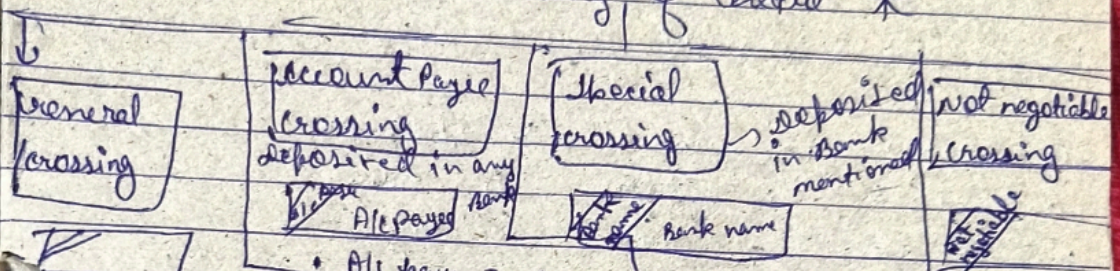 General
crossing
Account Payee
crossing
deposited in any
Bank
A/c payee
Special
crossing
deposited
in Bank
mentioned
Bank
name
Bank name
Not negotiable
crossing
Not